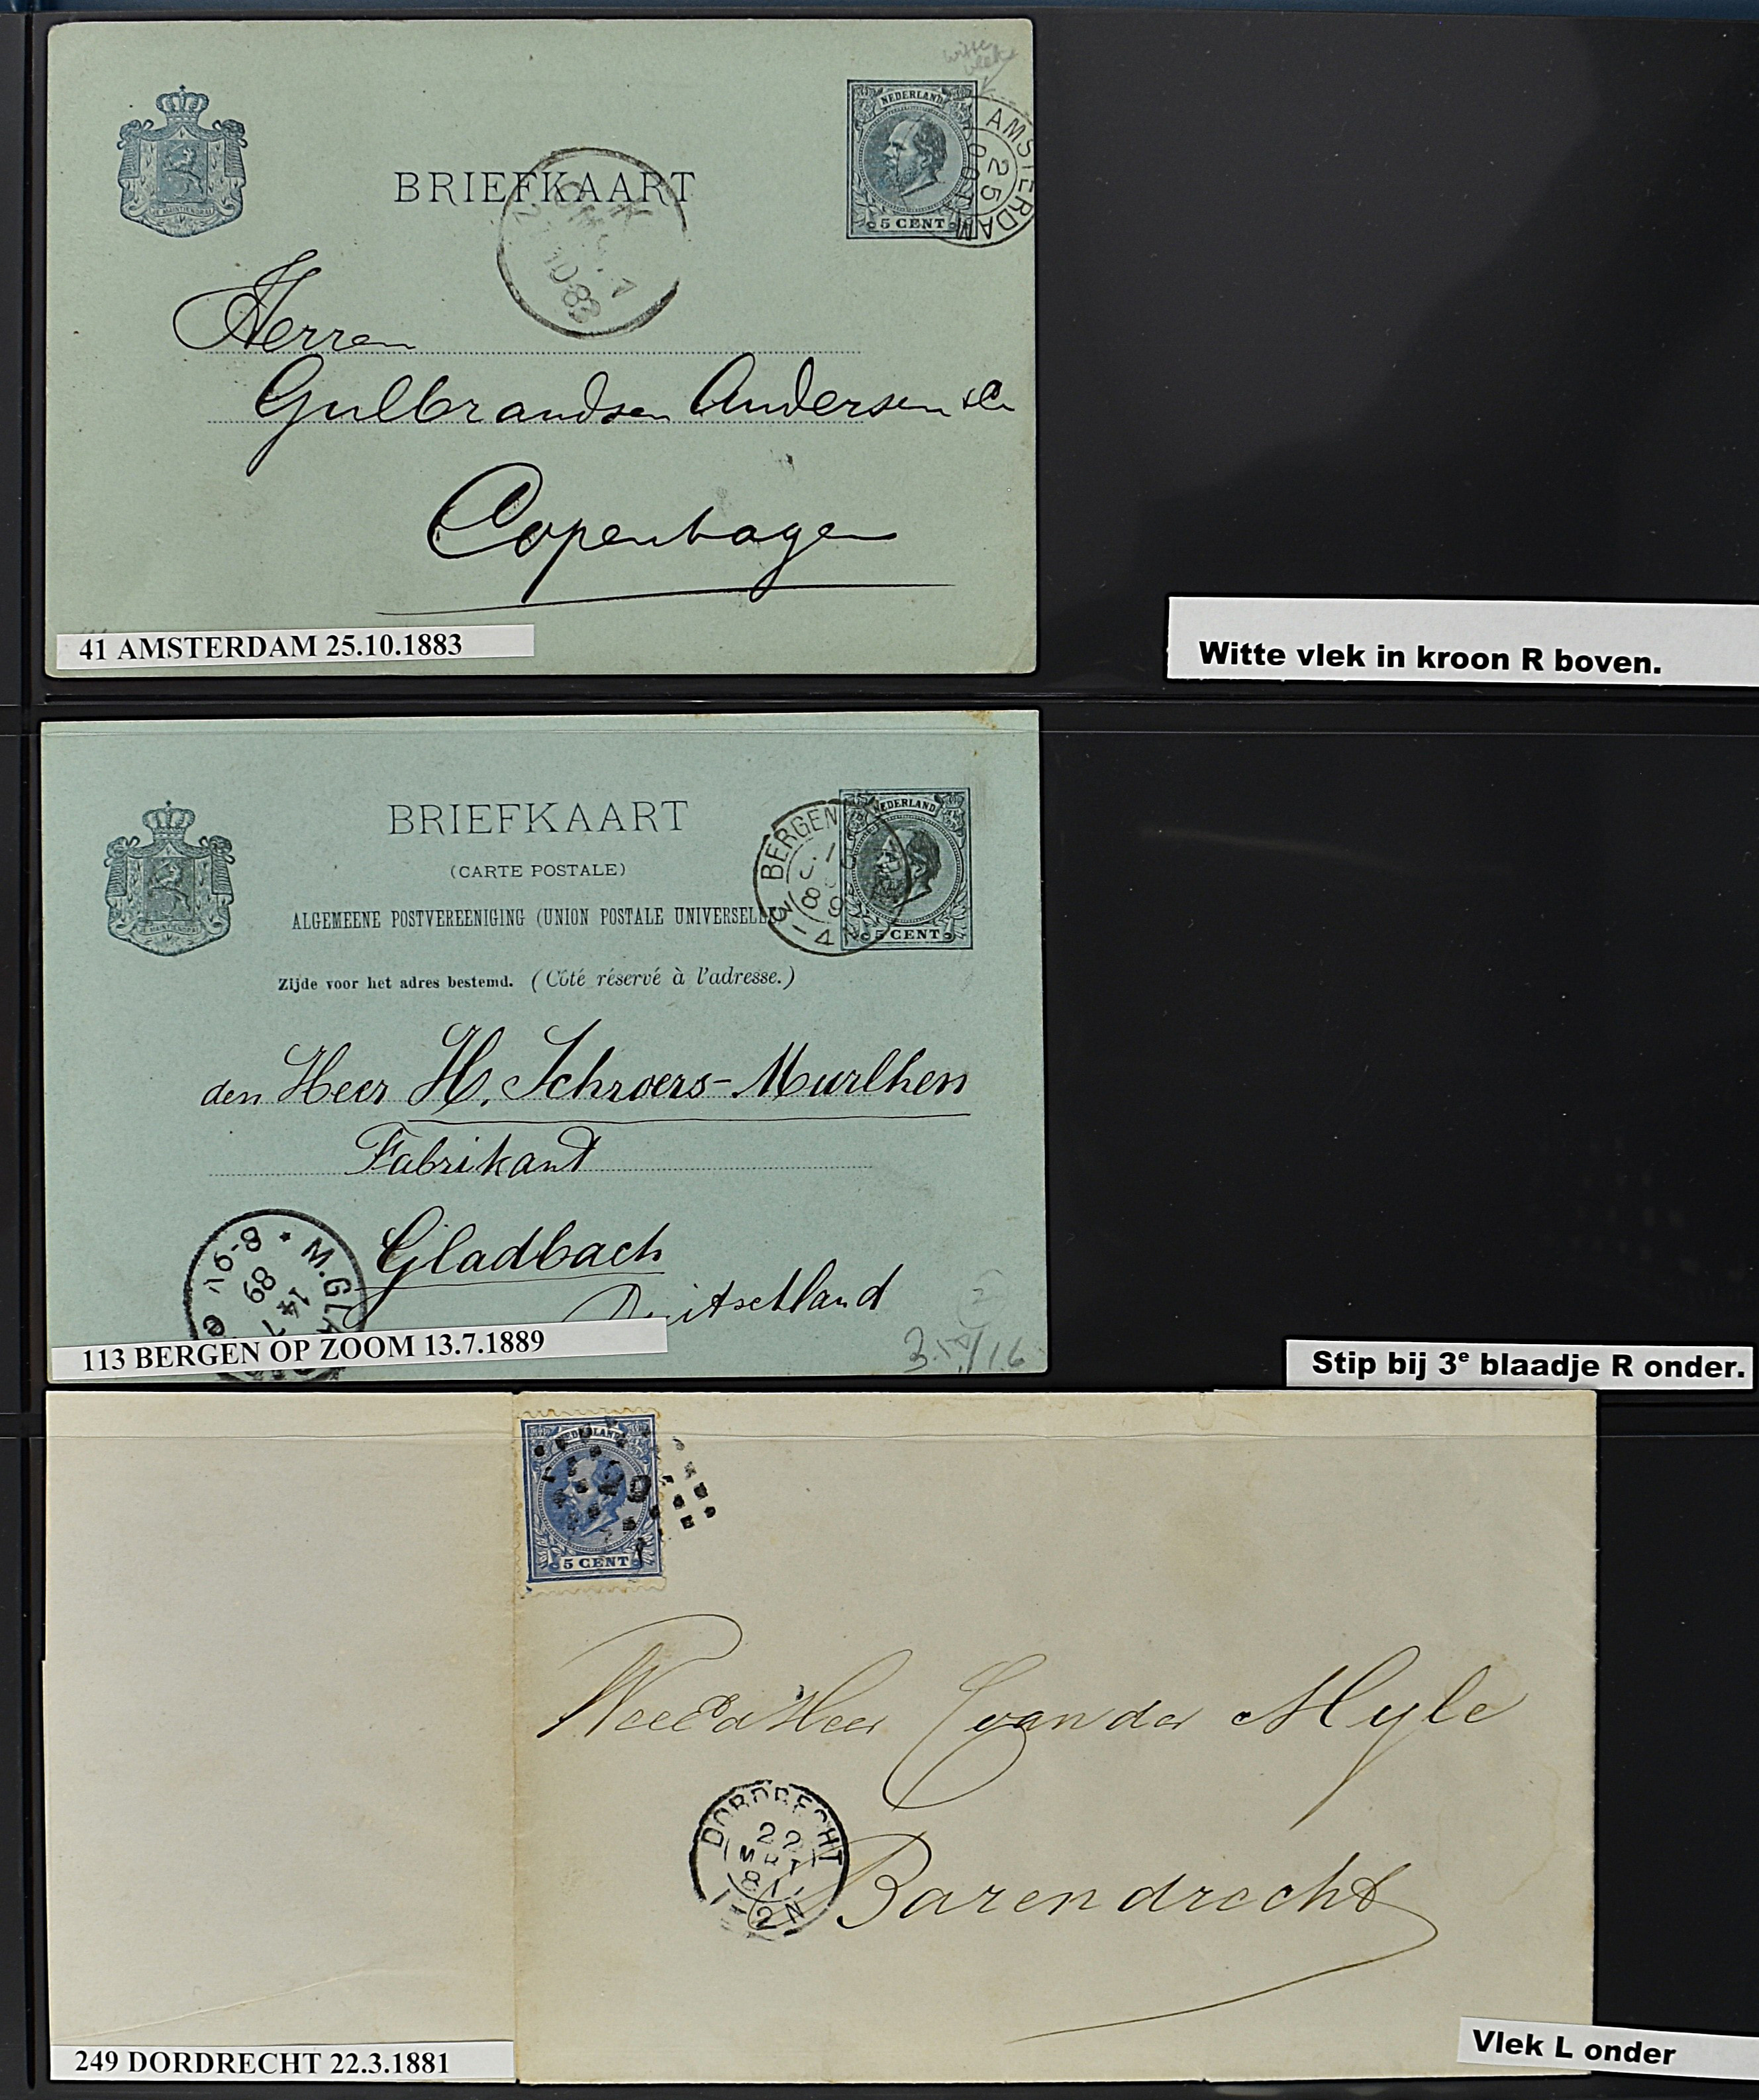 witte
vlek
NEDERLAND
AMSTERDAM
25
OCT
5 CENT
JE MAINTIENDRAI
BRIEFKAART
K
10 83
Herren
Gulbrandsen Andersen & Co
Copenhagen
41 AMSTERDAM 25.10.1883
Witte vlek in kroon R boven.
BRIEFKAART
(CARTE POSTALE)
ALGEMEENE POSTVEREENIGING (UNION POSTALE UNIVERSELLE)
Zijde voor het adres bestemd. (Côté réservé à l'adresse.)
JE MAINTIENDRAI
NEDERLAND
5 CENT
BERGEN
89
3-4
den Heer H. Schroers-Murlhen
Fabrikant
Gladbach
Duitschland
M.GLA
14 7
89
8-9V
113 BERGEN OP ZOOM 13.7.1889
Stip bij 3e blaadje R onder.
NEDERLAND
5 CENT
WeledHeer C van der Myle
Barendrecht
DORDRECHT
22
MRT
81
1-2N
249 DORDRECHT 22.3.1881
Vlek L onder